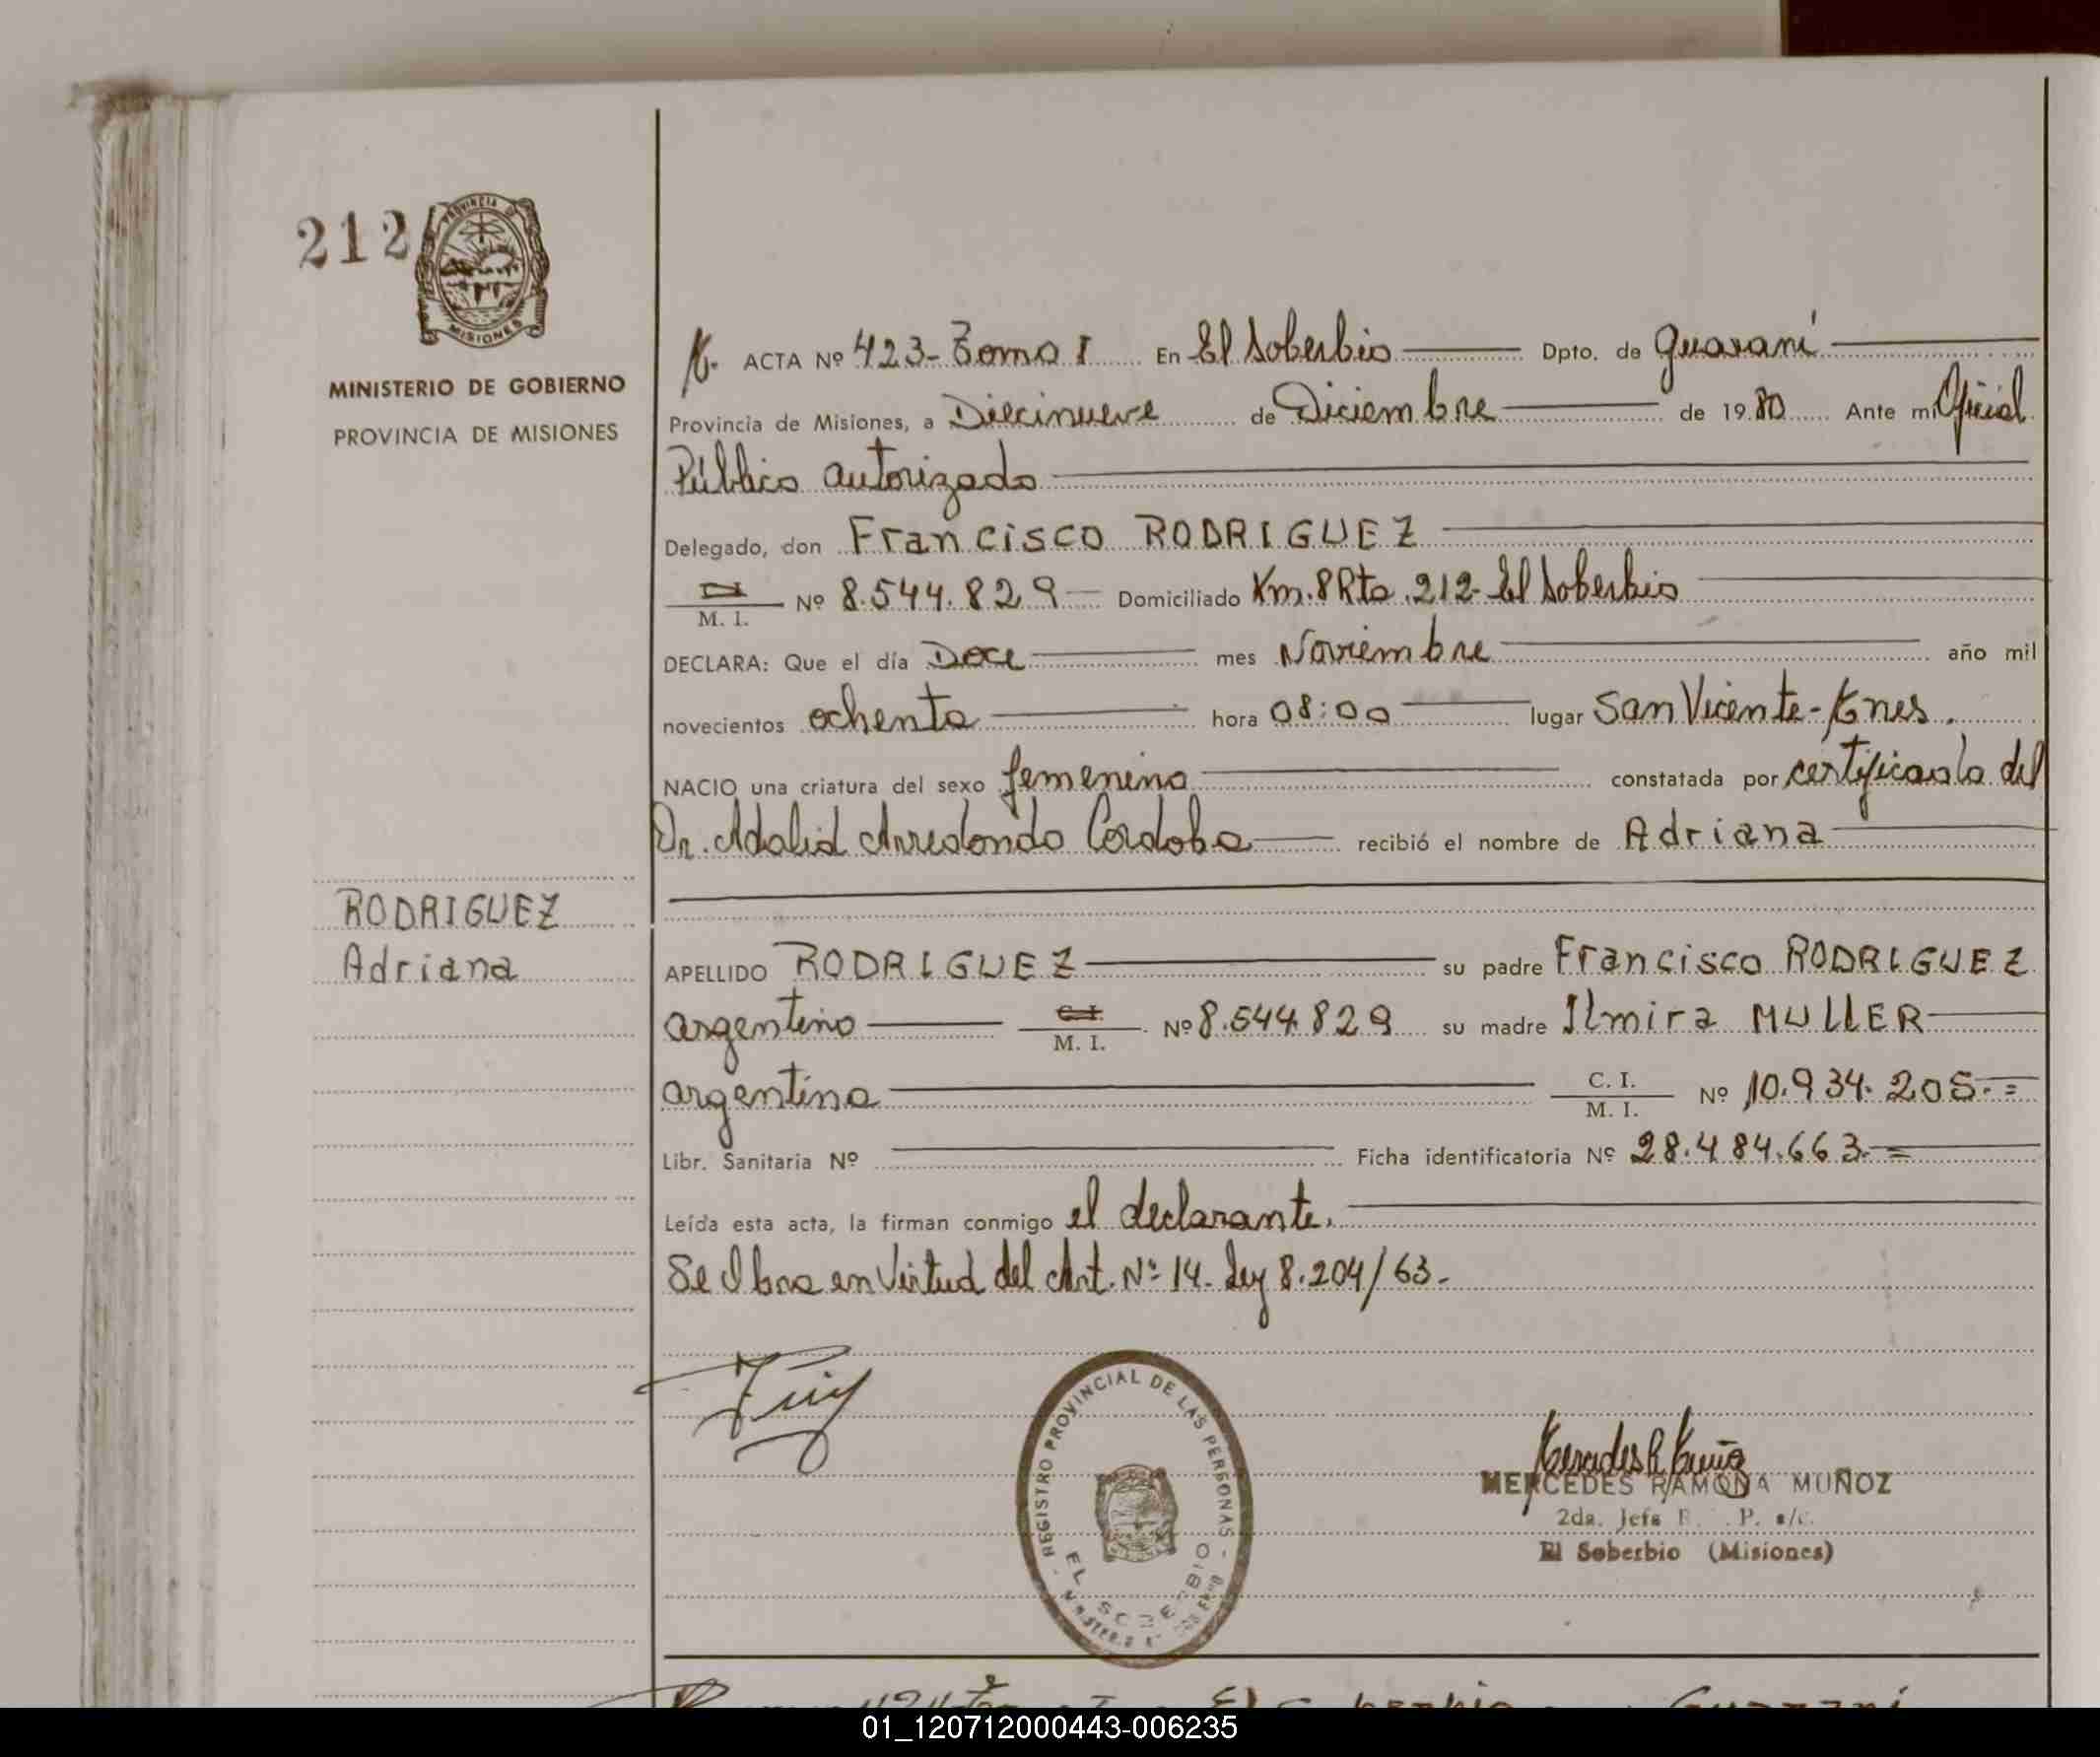 212
PROVINCIA DE
MISIONES
MINISTERIO DE GOBIERNO
PROVINCIA DE MISIONES
ACTA Nº 423-Tomo I En El Soberbio Dpto. de Guaraní
Provincia de Misiones, a Diecinueve de Diciembre de 1980 Ante mi Oficial
Público autorizado
Delegado, don Francisco RODRIGUEZ
M. I. Nº 8.544.829 Domiciliado Km. 8 Rta. 212- El Soberbio
DECLARA: Que el día Doce mes Noviembre año mil
novecientos ochenta hora 08:00 lugar San Vicente-Mnes.
NACIO una criatura del sexo femenino constatada por certificado del
Dr. Adalid Arredondo Cordoba recibió el nombre de Adriana
RODRIGUEZ
Adriana
APELLIDO RODRIGUEZ su padre Francisco RODRIGUEZ
argentino C. I. M. I. Nº 8.544.829 su madre Ilmira MULLER
argentina C. I. M. I. Nº 10.934.205.=
Libr. Sanitaria Nº Ficha identificatoria Nº 28.484.663.=
Leída esta acta, la firman conmigo el declarante.
Se Labra en Virtud del Art. Nº 14- Ley 8.204/63-
REGISTRO PROVINCIAL DE LAS PERSONAS -
EL SOBERBIO
MERCEDES RAMONA MUÑOZ
2da. Jefa P. s/c.
El Soberbio (Misiones)
01_120712000443-006235